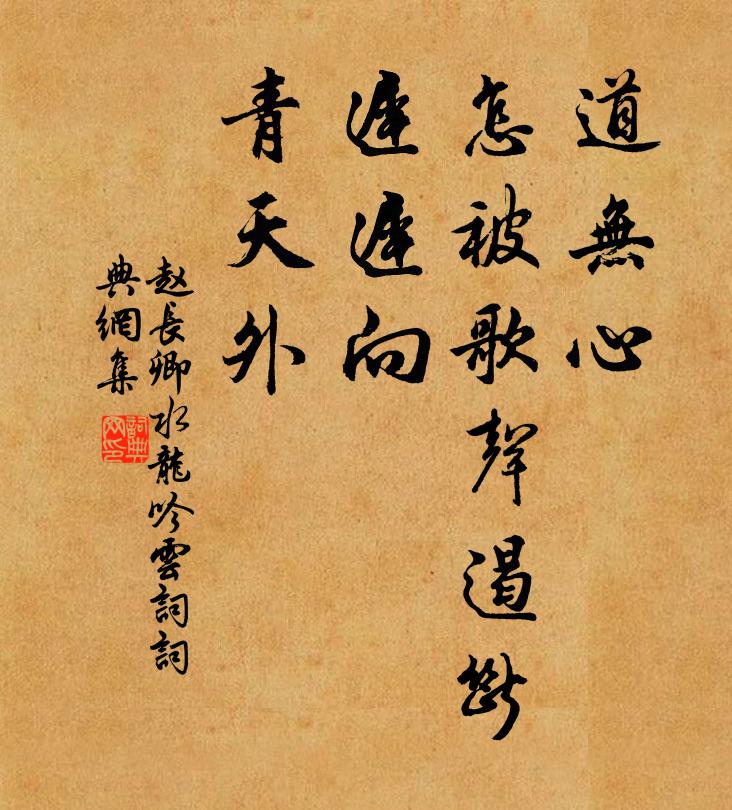 道無心
怎被歌聲遏斷
遲遲向
青天外
赵長卿水龍吟雲詞詞
典網集
詞典
网印